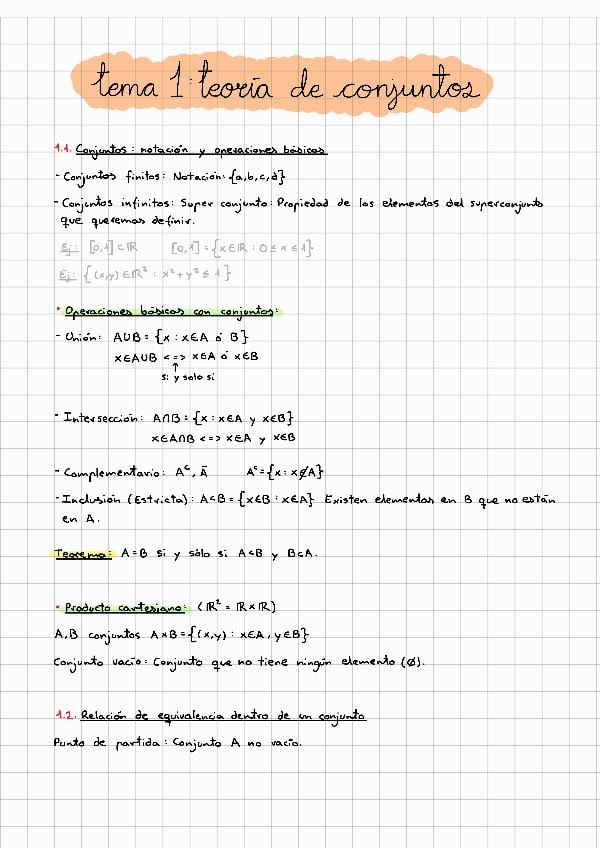 tema 1: teoría de conjuntos
1.1. Conjuntos: notación y operaciones básicas
- Conjuntos finitos: Notación: {a,b,c,d}
- Conjuntos infinitos: Super conjunto: Propiedad de los elementos del superconjunto
que queremos definir.
Ej: [0,1]⊂ℝ [0,1]={x∈ℝ: 0≤x≤1}
Ej: {(x,y)∈ℝ²: x²+y²≤1}
• Operaciones básicas con conjuntos:
- Unión: A∪B = {x: x∈A ó B}
x∈A∪B <=> x∈A ó x∈B
↑
si y solo si
- Intersección: A∩B={x: x∈A y x∈B}
x∈A∩B <=> x∈A y x∈B
- Complementario: Aᶜ, Ā Aᶜ={x: x∉A}
- Inclusión (Estricta): A⊂B={x∈B: x∈A} Existen elementos en B que no están
en A.
Teorema: A=B si y sólo si A⊂B y B⊂A.
• Producto cartesiano: (ℝ²=ℝxℝ)
A,B conjuntos AxB={(x,y): x∈A, y∈B}
Conjunto vacío: Conjunto que no tiene ningún elemento (Ø).
1.2. Relación de equivalencia dentro de un conjunto
Punto de partida: Conjunto A no vacío.